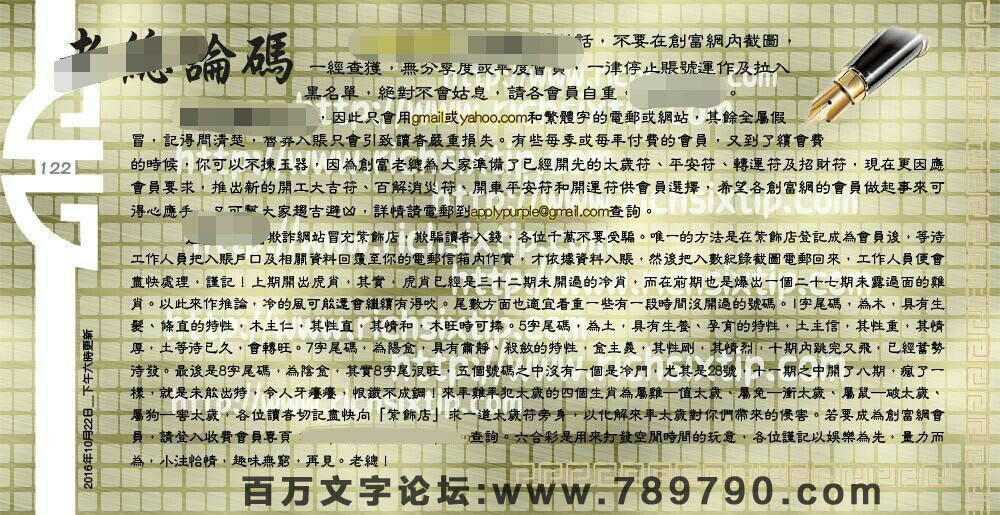 總論碼
話，不要在創富網內截圖，
一經查獲，無分季度或年度會員，一律停止賬號運作及拉入
黑名單，絕對不會姑息，請各會員自重，
，因此只會用gmail或yahoo.com和繁體字的電郵或網站，其餘全屬假
冒，記得問清楚，魯莽入賬只會引致讀者嚴重損失。有些每季或每年付費的會員，又到了續會費
122
的時候，你可以不揀玉器，因為創富老總為大家準備了已經開先的太歲符、平安符、轉運符及招財符，現在更因應
會員要求，推出新的開工大吉符、百解消災符、開車平安符和開運符供會員選擇，希望各創富網的會員做起事來可
得心應手，又可幫大家趨吉避凶，詳情請電郵到applypurple@gmail.com查詢。
欺詐網站冒充紫飾店，欺騙讀者入錢，各位千萬不要受騙。唯一的方法是在紫飾店登記成為會員後，等待
工作人員把入賬戶口及相關資料回覆至你的電郵信箱內作實，才依據資料入賬，然後把入數紀錄截圖電郵回來，工作人員便會
盡快處理，謹記！上期開出虎肖，其實，虎肖已經是二十二期未開過的冷肖，而在前期也是爆出一個二十七期未露過面的雞
肖。以此來作推論，冷的風可能還會繼續有得吹。尾數方面也適宜看重一些有一段時間沒開過的號碼。1字尾碼，為木，具有生
髮、條直的特性，木主仁，其性直，其情和，木旺時可捧。5字尾碼，為土，具有生養、孕育的特性，土主信，其性重，其情
厚，土等待已久，會轉旺。7字尾碼，為陽金，具有肅靜、殺斂的特性，金主義，其性剛，其情烈，十期內跳完又飛，已經蓄勢
待發。最後是8字尾碼，為陰金，其實8字尾很旺，五個號碼之中沒有一個是冷門，尤其是28號，十一期之中開了八期，瘋了一
樣，就是未能出特，令人牙癢癢，恨鐵不成鋼！來年雞年犯太歲的四個生肖為屬雞—值太歲、屬兔—衝太歲、屬鼠—破太歲、
屬狗—害太歲，各位讀者切記盡快向「紫飾店」求一道太歲符旁身，以化解來年太歲對你們帶來的侵害。若要成為創富網會
員，請登入收費會員專頁 查詢。六合彩是用來打發空閒時間的玩意，各位謹記以娛樂為先，量力而
為，小注怡情，趣味無窮，再見。老總！
2016年10月22日_下午六時更新
http://www.richsixtip.com
http://www.richsixtip.com
http://www.richsixtip.com
百万文字论坛:www.789790.com